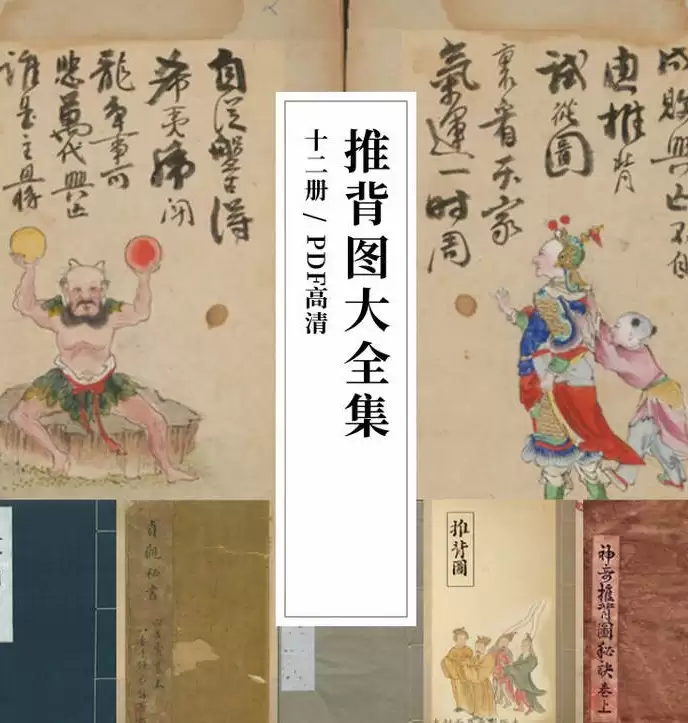 推背图大全集
十二册 / PDF高清
成敗興亡不自
由推背
試從圖
裏看天家
氣運一时周
自從盤古得
希夷虎鬪
龍爭事可
悲萬代興亡
誰是主
貞觀秘書
推背圖
神奇推背圖秘訣卷上